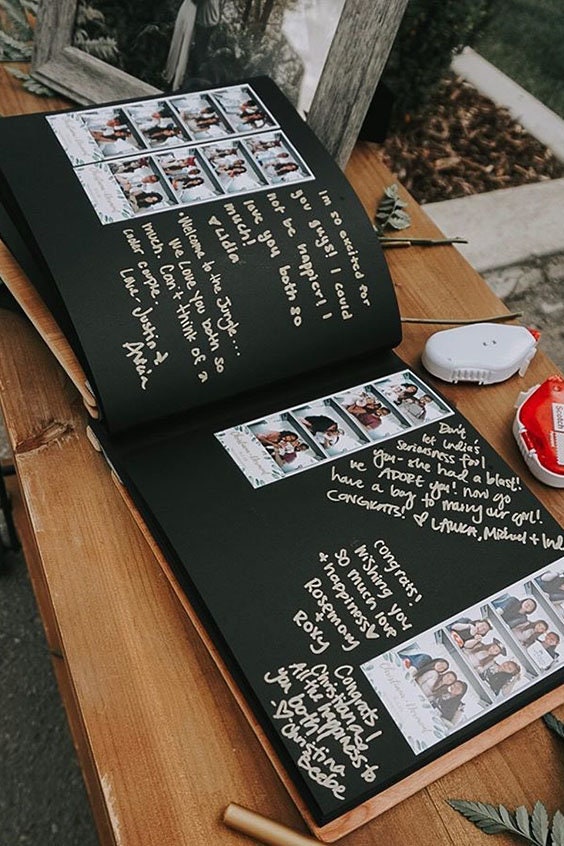 I'm so excited for
you guys! I could
not be happier! I
love you both so
much!
♥ Lidia
"Welcome to the Jungle...
We Love you both so
much. Can't think of a
cooler couple.
Love, Justin &
Alycia
Don't
let India's
Seriousness fool
you - she had a blast!
we ADORE you! now go
have a boy to marry our girl!
CONGRATS! ♡ LAURA, Michael + Ind
congrats!
Wishing you
so much love
+ happiness ♥
Rosemary
+
Roxy
Congrats!
Christian and
All the happiness to
you both!
♡ Christina
Beebe
Scotch